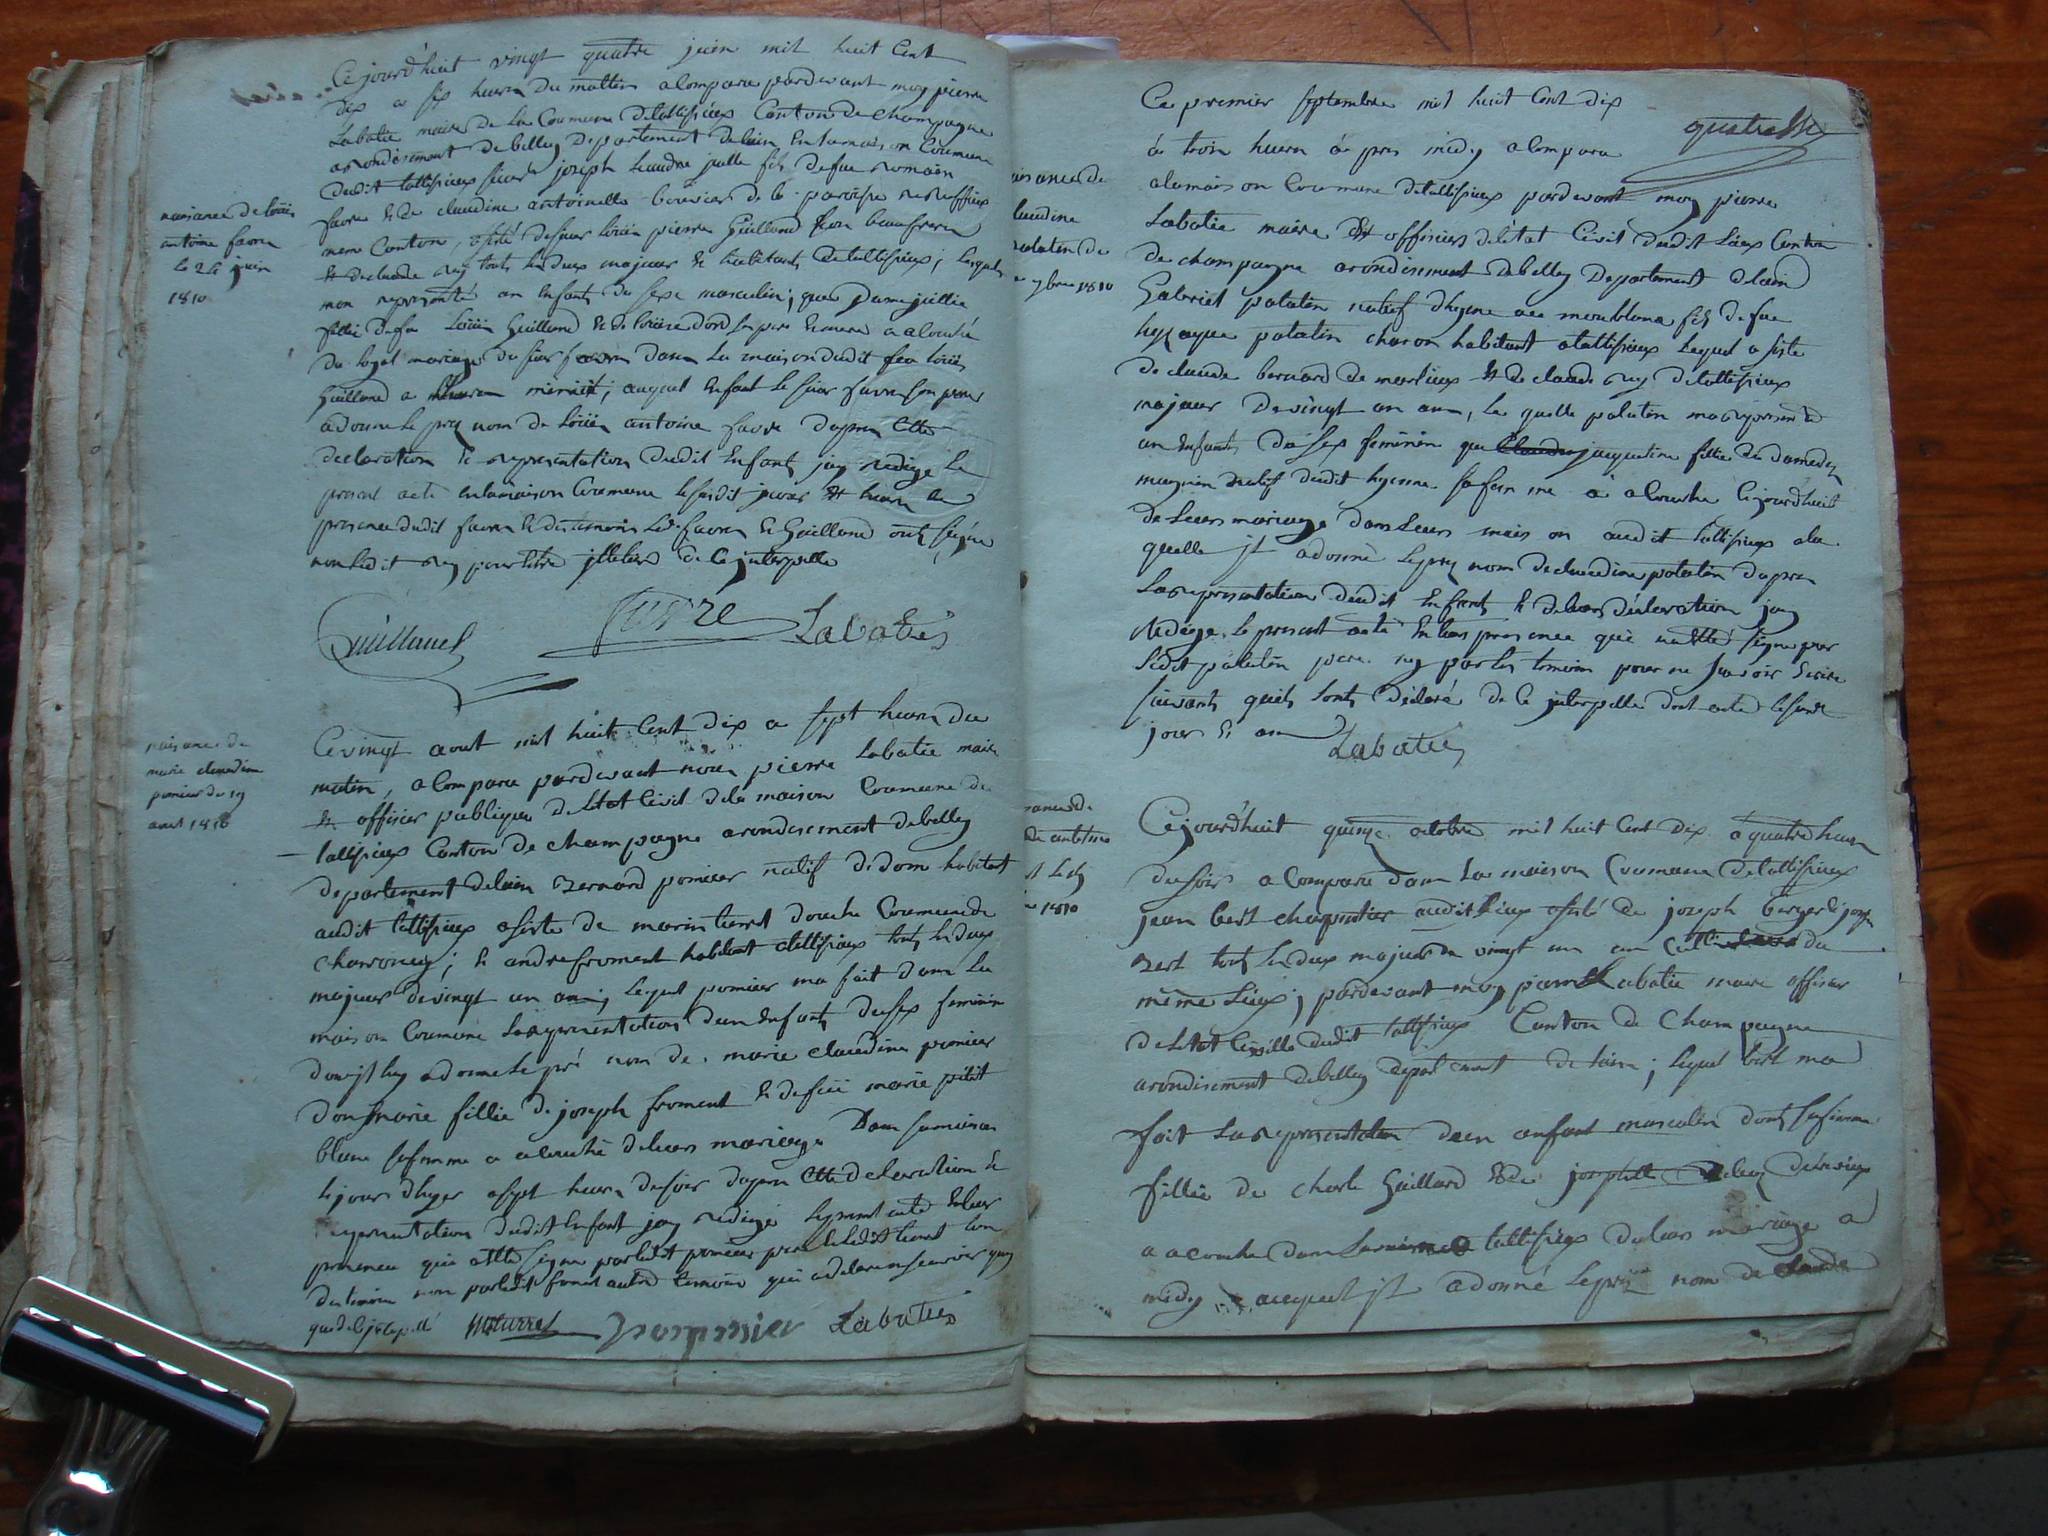 Cejourd'huit vingt quatre juin mil huit Cent
dix a six heures du mattin a Comparu pardevant moy pierre
Labatie maire de La Coumune detallisieux Canton de champagne
arondisement de belley Departement delain En la maison Coumune
dudit tallisieux sieur joseph fils defue romain
favre & de claudine antoinette bouvier de la paroisse
meme Canton, assisté de sieur loüis pierre Guilland son beaufrere
& de claude touts les deux majeur & habitants detallisieux; Lesquels
mon representé un Enfants du sexe masculin; que Dame jullie
fillie defue Loüis Guilland & de loüise sa pere & mere a acouché
du legal mariage du sieur favre dans La maison dudit feu loüis
Guilland a minuit; auquel Enfant le sieur favre son pere
a donne le prez nom de loüis antoine favre dapres Cette
declaration & representation dudit Enfants jay redigé Le
present acte enlamaison Coumune lesusdit jour & heure en
presence dudit favre & des temoins Led. favre & Guilland onts signé
non ledit ruy pour Etre jlleteré de Ce jnterpellé
Guilland favre Labatie
naisance de loüis
antoine favre
le 24 juin
1810
Cevingt aout mil huit Cent dix a sept heures du
matin, a Comparu pardevant nous pierre Labatie maire
& officier publique de létat Civil dela maison Coumune de
tallisieux Canton de champagne arondisement debelley
departement delain Bernard pomier natif de dom habitant
audit tallisieux assisté de marin turret douche Coumune de
charoncey; & andre froment habitant atallisieux touts les deux
majeur devingt un ans; Lequel pomier ma fait dans La
maison Coumune La representation dun Enfants du sex feminin
donts jl luy a donne le pré nom de marie claudine pomier
dont marie fillie de joseph froment & defüe marie petit
blanc safemme a acouché deleurs mariage Dans sa maison
le jour dhyer a sept heures du soir dapres Cette declaration &
representation dudit Enfant jay redigé le present acte En leur
presence qui a Etté signe par ledit pomier pere & ledit turret lun
des temoins non par ledit froment autre temoin qui a declaré ne savoir
que de ce jnterpellé Mturret pommier Labatie
naisance de
marie claudine
pomier du 19
aout 1810
Ce premier septembre mil huit Cent dix
quatre
à trois heures à pres midy a Comparu
alamaison Coumune detallisieux pardevant moy pierre
Labatie maire & officiers delétat Civil dudit Lieux Canton
de champagne arondisement debelley Departement delain
Gabriel polatin natif dhyene au moublanc fils defue
polatin charon habitant atallisieux Lequel assisté
de claude bernard de merlieux & de claude ruy detallisieux
majeur devingt un ans, Le quelle polatin ma representé
un Enfants du sex feminin que jacqueline fillie du damedey
mugnier natif dudit hyenne sa femme à acouché Cejourdhuit
de Leurs mariage dans Leurs maison audit tallisieux ala
quelle jl adonné leprez nom declaudine polatin dapres
Lareprésentation dudit Enfants & deleurs déclaration jay
rédigé le present acte En leurs presence qui a etté signe par
ledit polatin pere ny par les temoins pour ne savoir Ecrire
suivants quils lonts déclaré de Ce jnterpellé dont acte lesusdit
jour & an Labatie
naisance de
claudine
polatin du
7bre 1810
Cejourd'huit quinze octobre mil huit Cent dix à quatre heures
du soir a Comparu dans La maison Coumune detallisieux
jean bert charpentier audit Lieux assisté de joseph berger & josep
Bert touts les deux majeur de vingt un ans du
même Lieux; pardevant moy pierre Labatie maire officier
de létat Civille dudit tallisieux Canton de Champagne
arondisement debelley departement de lain; Lequel bert ma
fait La representation dun enfant masculin donts safemme
fillie de charle Guilland & de josephtte
a acouché dans tallisieux deleurs mariage a
midy auquel jl a donné leprez nom de claude
antelme
1810